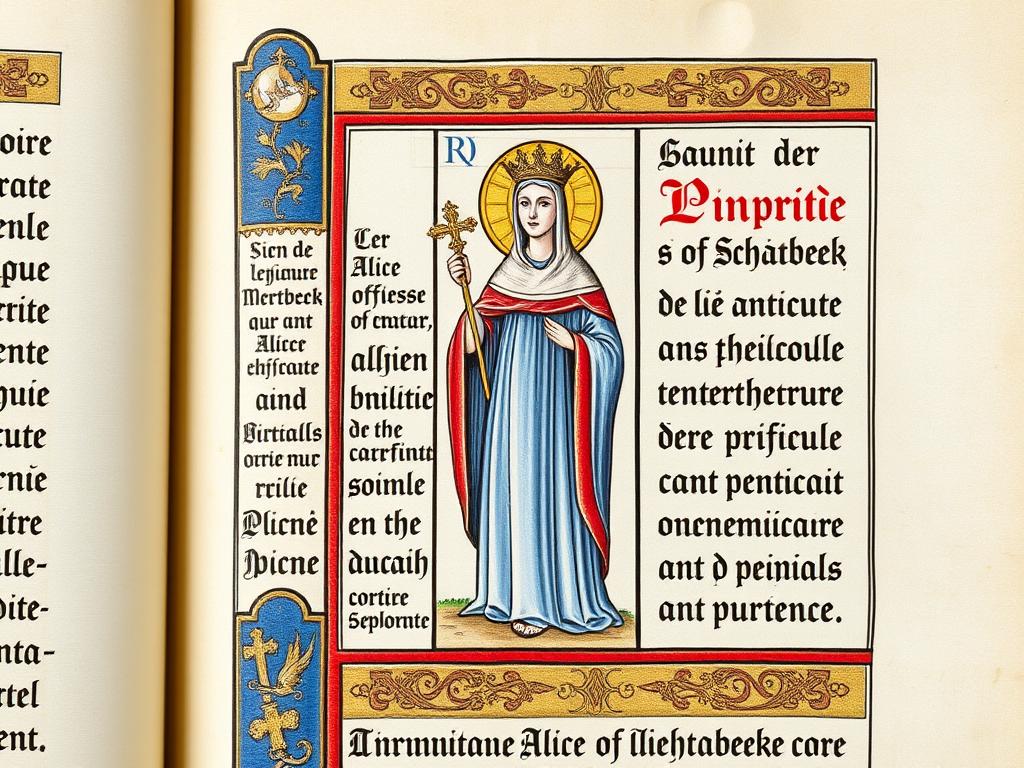 oire
rate
enle
pue
rrite
ente
guie
cute
rnie
itre
lle-
oite-
nta-
rtel
ent.
Sien de
lefiaure
Mertbeck
aur ant
Alicce
ehffcaute
aind
Virtialls
orrie nur
rrilie
Plicnê
Picne
RD
Cer
Alice
offiesse
of cratar,
alhien
bnilitie
de the
carrfintt
soimle
en the
ducaih
cortire
Seplornte
Saunit der
Pinpritìe
s of Schàtbeek
de lié anticute
ans theilcoulle
tenterthetrure
dere prificule
cant penticait
oncnemiicaire
ant d peinials
ant purtence.
Alice of care